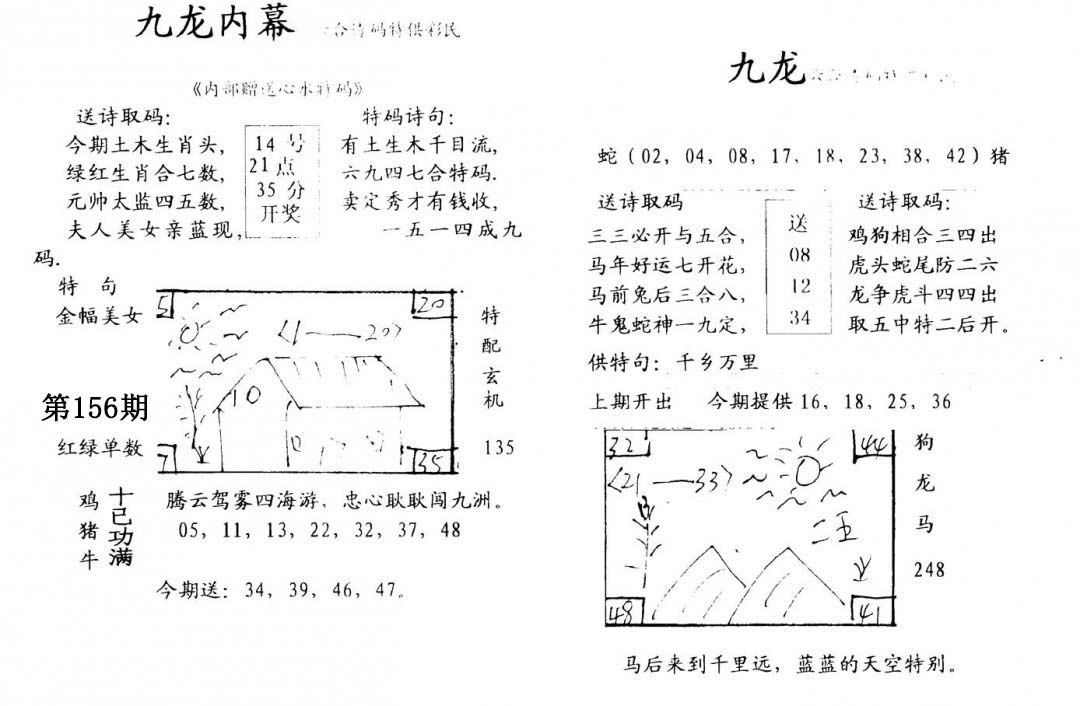 九龙内幕
合 码特供彩民
《内部赠送心水特码》
送诗取码：
今期土木生肖头，
绿红生肖合七数，
元帅太监四五数，
夫人美女亲蓝现，
码.
14 号
21 点
35 分
开奖
特码诗句：
有土生木千目流，
六九四七合特码.
卖定秀才有钱收，
一五一四成九
特 句
金幅美女
第156期
红绿单数
5
20
〈1——20〉
10
7
35
特
配
玄
机
135
鸡
猪
牛
十
已
功
满
腾云驾雾四海游，忠心耿耿闯九洲。
05，11，13，22，32，37，48
今期送：34，39，46，47。
九龙
蛇（02，04，08，17，18，23，38，42）猪
送诗取码
三三必开与五合，
马年好运七开花，
马前兔后三合八，
牛鬼蛇神一九定，
送
08
12
34
送诗取码：
鸡狗相合三四出
虎头蛇尾防二六
龙争虎斗四四出
取五中特二后开。
供特句：千乡万里
上期开出 今期提供16，18，25，36
32
44
〈21——33〉
48
41
狗
龙
马
248
马后来到千里远，蓝蓝的天空特别。